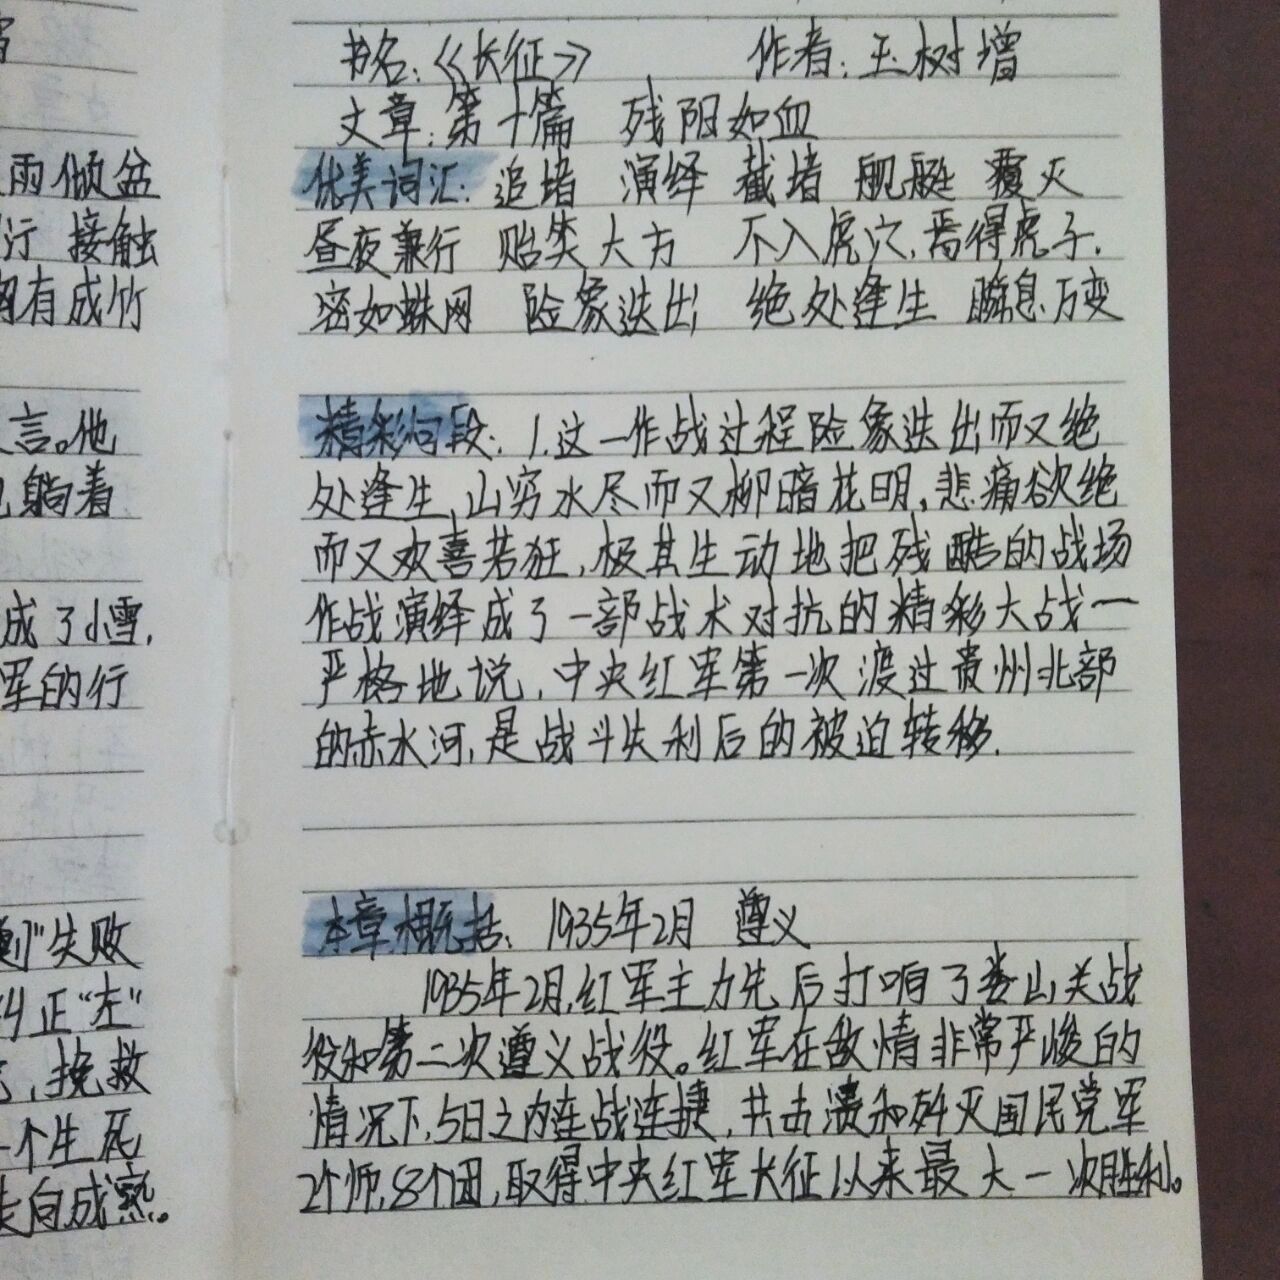 雨倾盆
行 接触
胸有成竹
言。他
躺着
成了小雪,
军的行
失败
纠正"左"
,挽救
个生死
走向成熟。
书名:《长征》 作者:王树增
文章:第十篇 残阳如血
优美词汇: 追堵 演绎 截堵 舰艇 覆灭
昼夜兼行 贻笑大方 不入虎穴,焉得虎子.
密如蛛网 险象迭出 绝处逢生 瞬息万变
精彩句段: 1.这一作战过程险象迭出而又绝
处逢生,山穷水尽而又柳暗花明,悲痛欲绝
而又欢喜若狂,极其生动地把残酷的战场
作战演绎成了一部战术对抗的精彩大战一
严格地说,中央红军第一次渡过贵州北部
的赤水河,是战斗失利后的被迫转移.
本章概括: 1935年2月 遵义
1935年2月,红军主力先后打响了娄山关战
役和第二次遵义战役。红军在敌情非常严峻的
情况下,5日之内连战连捷,共击溃和歼灭国民党军
2个师,8个团,取得中央红军长征以来最大一次胜利。